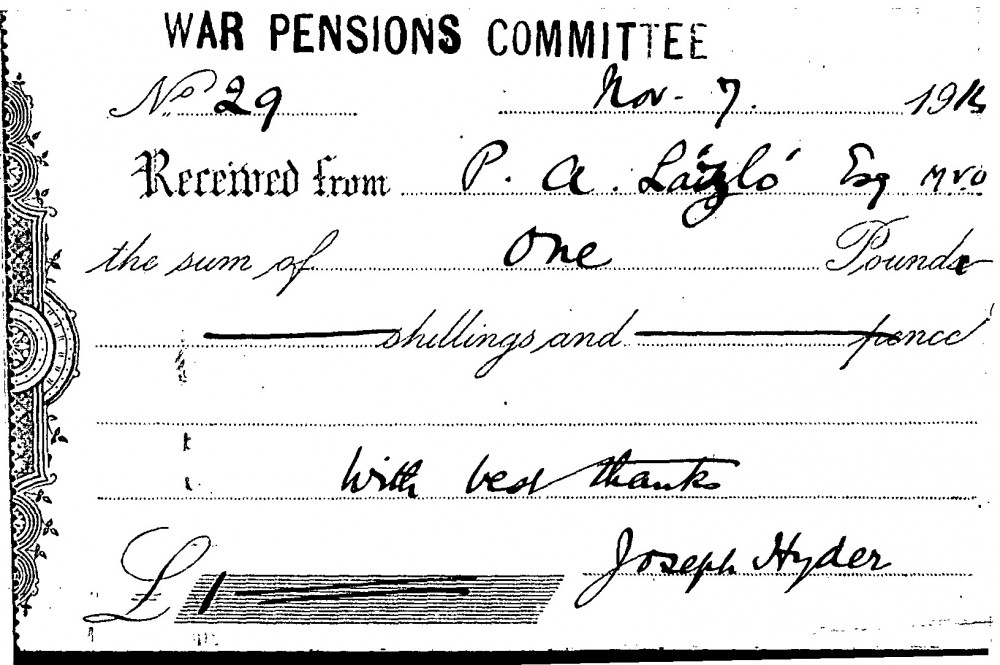 WAR PENSIONS COMMITTEE
No 29 Nov. 7. 1916
Received from P. A. László Esq MVO
the sum of One Pounds
shillings and pence
With best thanks
£1 Joseph Hyder